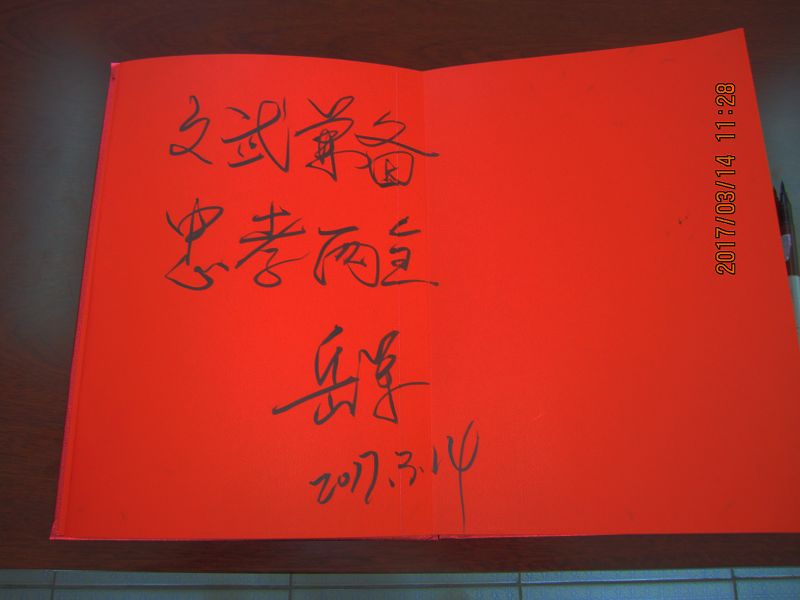 文武兼备
忠孝两全
岳军
2017.3.14
2017/03/14 11:28